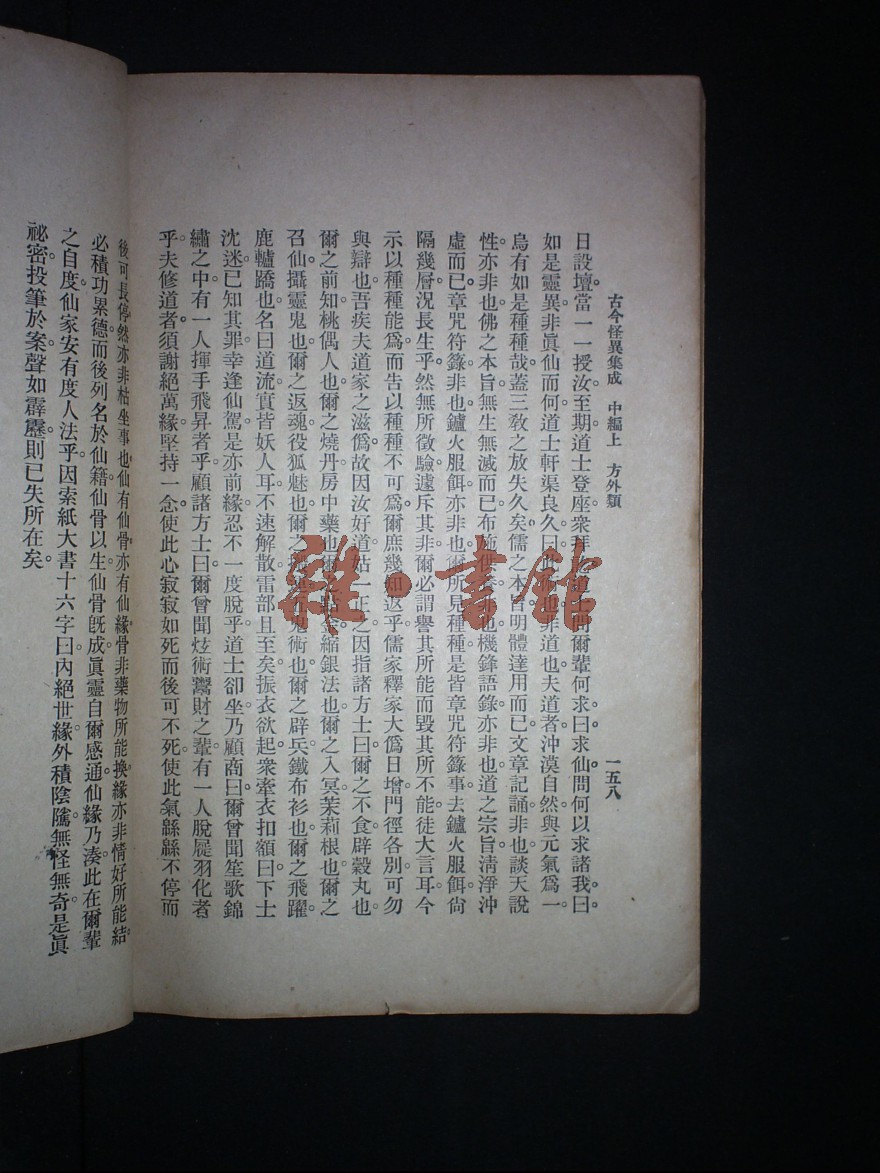 古今怪異集成 中編上 方外類 一五八
日設壇當一一授汝至期道士登座衆拜訖道士問爾輩何求曰求仙問何以求諸我曰
如是靈異非眞仙而何道士軒渠良久曰此術也非道也夫道者沖漠自然與元氣爲一
烏有如是種種哉蓋三敎之放失久矣儒之本旨明體達用而已文章記誦非也談天說
性亦非也佛之本旨無生無滅而已布施供養非也機鋒語錄亦非也道之宗旨清淨沖
虛而已章咒符籙非也鑪火服餌亦非也爾所見種種是皆章咒符籙事去鑪火服餌尙
隔幾層況長生乎然無所徵驗遽斥其非爾必謂譽其所能而毀其所不能徒大言耳今
示以種種能爲而告以種種不可爲爾庶幾知返乎儒家釋家大僞日增門徑各別可勿
與辯也吾疾夫道家之滋僞故因汝好道姑一正之因指諸方士曰爾之不食辟穀丸也
爾之前知桃偶人也爾之燒丹房中藥也爾之點金縮銀法也爾之入冥茉莉根也爾之
召仙攝靈鬼也爾之返魂役狐魅也爾之搬運五鬼術也爾之辟兵鐵布衫也爾之飛躍
鹿轤蹻也名曰道流實皆妖人耳不速解散雷部且至矣振衣欲起衆牽衣扣額曰下士
沈迷已知其罪幸逢仙駕是亦前緣忍不一度脫乎道士卻坐乃顧商曰爾曾聞笙歌錦
繡之中有一人揮手飛昇者乎顧諸方士曰爾曾聞炫術鬻財之輩有一人脫屣羽化者
乎夫修道者須謝絕萬緣堅持一念使此心寂寂如死而後可不死使此氣緜緜不停而
後可長停然亦非枯坐事也仙有仙骨亦有仙緣骨非藥物所能換緣亦非情好所能結
必積功累德而後列名於仙籍仙骨以生仙骨旣成眞靈自爾感通仙緣乃湊此在爾輩
之自度仙家安有度人法乎因索紙大書十六字曰內絕世緣外積陰騭無怪無奇是眞
祕密投筆於案聲如霹靂則已失所在矣
雜·書館